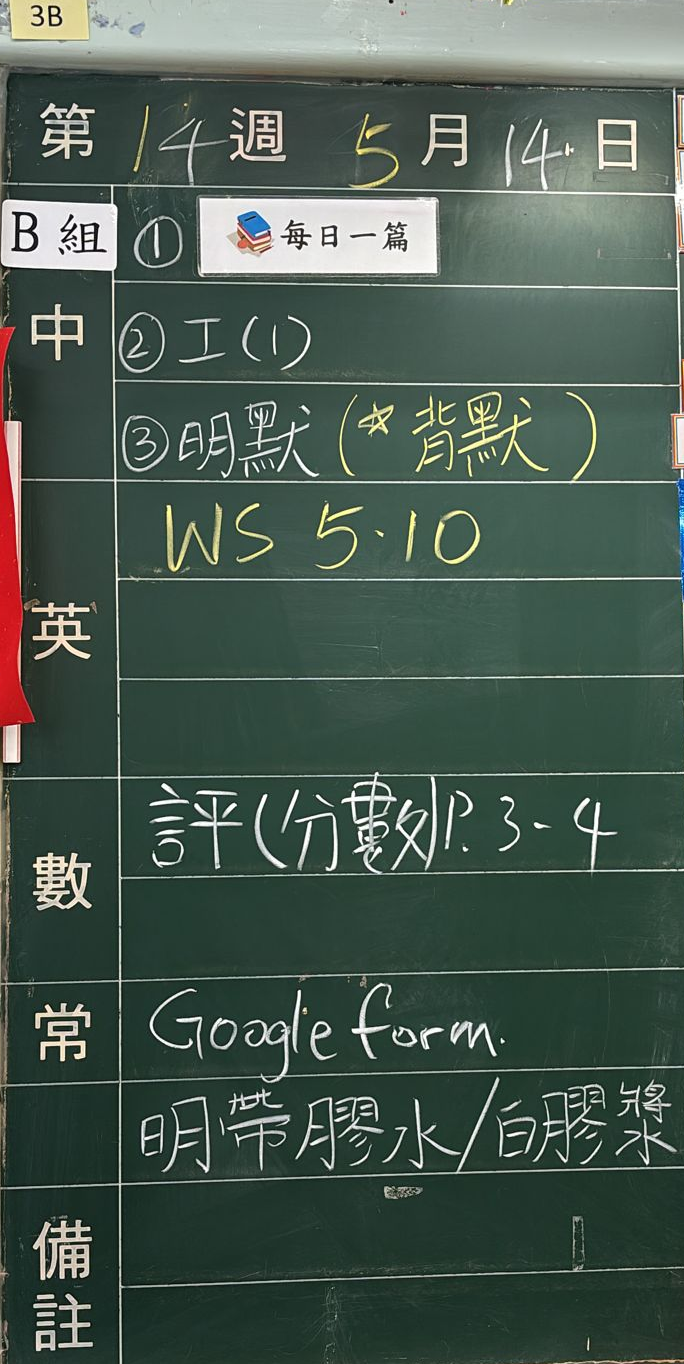 3B
第14週 5月14日
B組 ① 每日一篇
中 ②工(1)
③明默(*背默)
WS 5.10
英
評(分數)P.3-4
數
常 Google form.
明帶膠水/白膠漿
備註